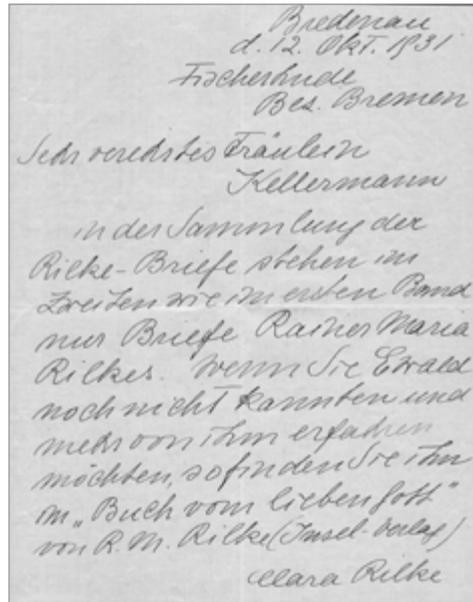 Bredenau
d. 12. Okt. 1931
Fischerhude
Bez. Bremen
Sehr verehrtes Fräulein
Kellermann
in der Sammlung der
Rilke-Briefe stehen im
zweiten wie im ersten Band
nur Briefe Rainer Maria
Rilkes. Wenn Sie Ewald
noch nicht kannten und
mehr von ihm erfahren
möchten, so finden Sie ihn
im „Buch vom lieben Gott"
von R. M. Rilke (Insel-Verlag)
Clara Rilke